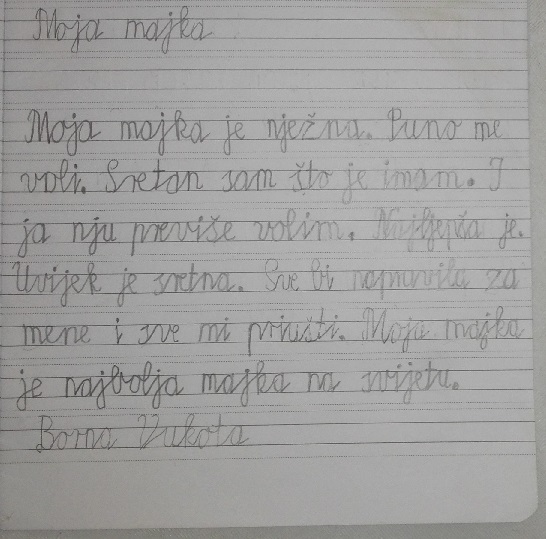 Moja majka
Moja majka je nježna. Puno me
voli. Sretan sam što je imam. I
ja nju previše volim. Najljepša je.
Uvijek je sretna. Sve bi napravila za
mene i sve mi priušti. Moja majka
je najbolja majka na svijetu.
Borna Vukota